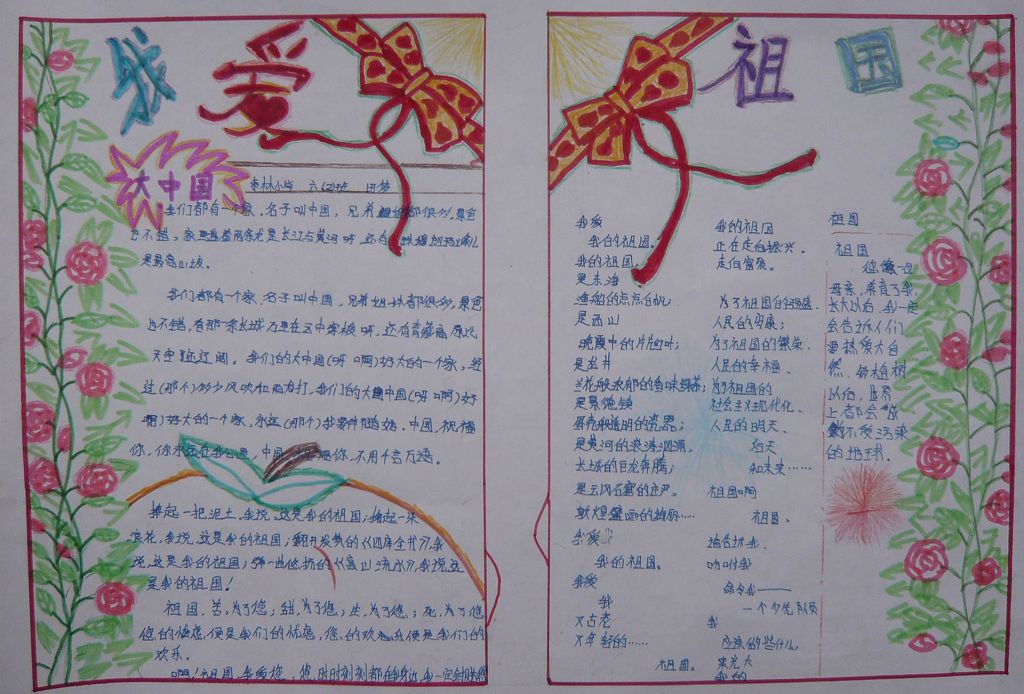 我 爱
大中国
林小学 六(2)班 田梦
我们都有一个家,名子叫中国,兄弟姐妹都很多,景色
也不错,家里盘着两条龙是长江与黄河呀,还有
是最高山坡。
我们都有一个家,名子叫中国,兄弟姐妹都很多,景色
也不错,看那一条长城万里在云中穿梭呀,还有青藏高原比
天空还辽阔。我们的大中国(呀 啊)好大的一个家,经
过(那个)多少风吹和雨打,我们的大中国(呀 啊)好
好大的一个家,永远(那个)我要伴随她,中国,祝福
你,你永远在我心里,中国 你,不用千言万语。
捧起一把泥土,我说,这是我的祖国;掬起一朵
浪花,我说,这是我的祖国;翻开发黄的《四库全书》,我
说,这是我的祖国;弹一曲低抗的《高山流水》,我说,这
是我的祖国!
祖国,苦,为了您;甜,为了您;生,为了您;死,为了您
您的忧虑,便是我们的忧虑,您的欢乐便是我们的
欢乐。
啊!祖国,我爱您,您时时刻刻都在我身边,我一定
祖 国
我爱
我的祖国。
我的祖国,
是东海
渔船的点点白帆;
是西山
晚霞中的片片红叶;
是龙井
兰花般浓郁的香味绿茶;
是景德镇
蛋壳般透明的瓷器;
是黄河的滚滚汹涌,
长城的巨龙奔腾;
是云冈石窟的庄严,
敦煌壁画的绚丽……
我爱
我的祖国。
我爱
我
又古老
又年轻的……
祖国。
我的祖国
正在走向振兴,
走向富裕。
为了祖国的强盛
人民的安康;
为了祖国的繁荣
人民的幸福
为了祖国的
社会主义现代化,
人民的明天、
后天
和未来……
祖国啊
祖国。
请告诉我,
吩咐我
命令我——
一个少先队员
我
应该做些什么,
来光大
我的
祖国
祖国
您像一位
母亲,养育了我,
长大以后,我一定
会告诉人们
要热爱大自
然,多植树
以后,世界
上都会成
的地球。